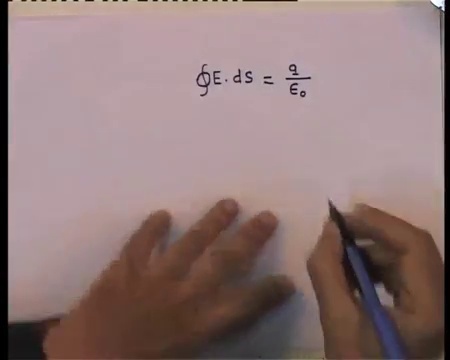 ∮E.ds = q/ε₀